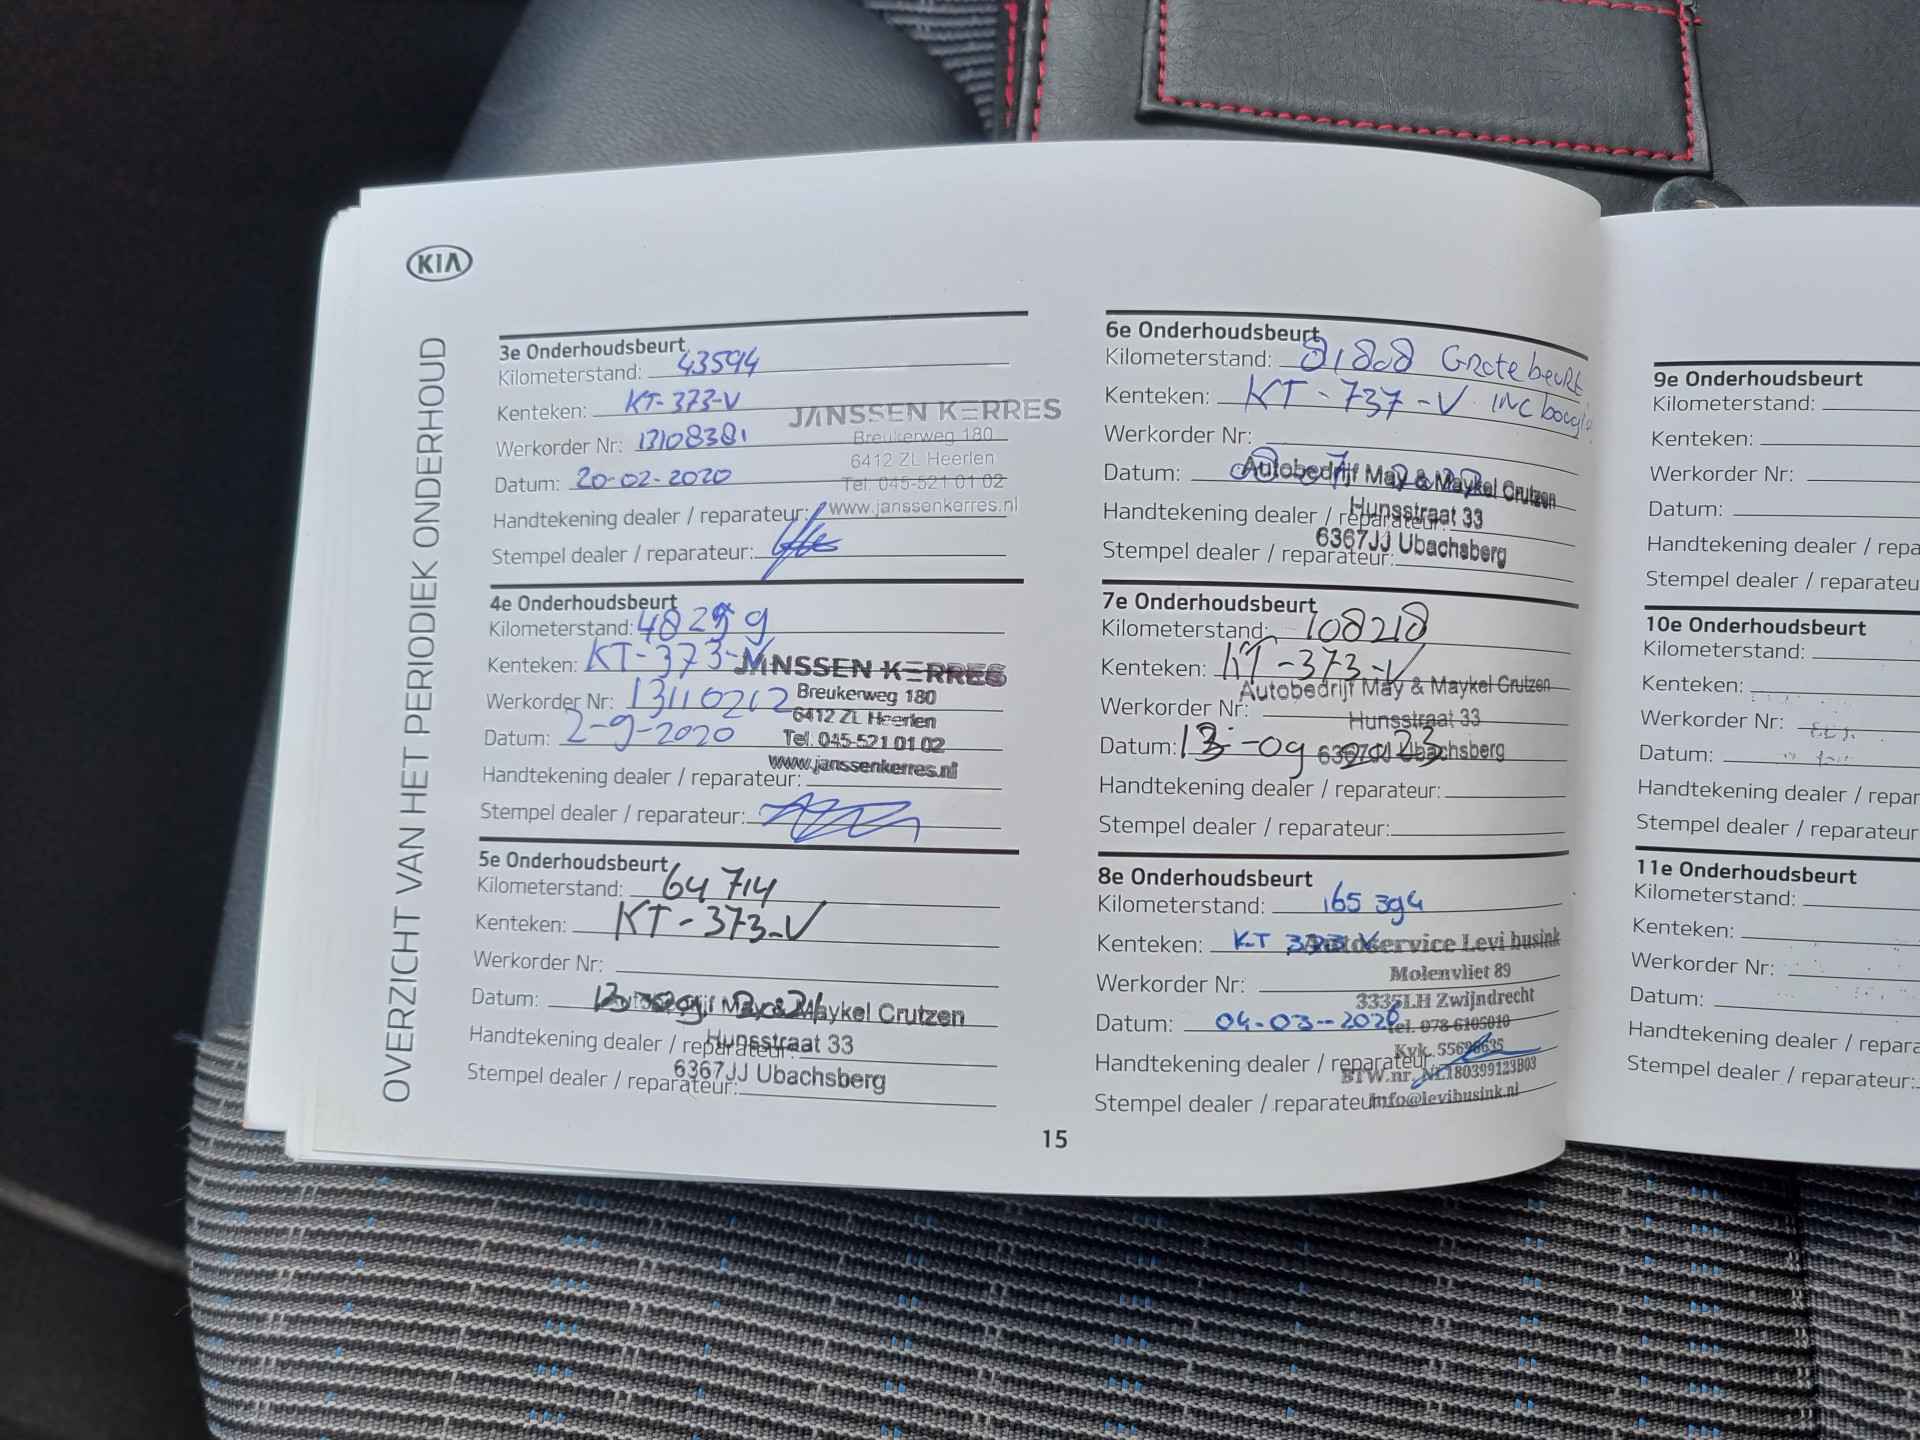 KIA
OVERZICHT VAN HET PERIODIEK ONDERHOUD
3e Onderhoudsbeurt
Kilometerstand: 43594
Kenteken: KT-373-V
Werkorder Nr: 13108381
Datum: 20-02-2020
Handtekening dealer / reparateur:
Stempel dealer / reparateur:
JANSSEN KERRES
Breukerweg 180
6412 ZL Heerlen
Tel. 045-521 01 02
www.janssenkerres.nl
4e Onderhoudsbeurt
Kilometerstand:
Kenteken: KT-373-V
Werkorder Nr: 13110212
Datum: 2-9-2020
Handtekening dealer / reparateur:
Stempel dealer / reparateur:
JANSSEN KERRES
Breukerweg 180
6412 ZL Heerlen
Tel. 045-521 01 02
www.janssenkerres.nl
5e Onderhoudsbeurt
Kilometerstand: 64 714
Kenteken: KT-373-V
Werkorder Nr:
Datum:
Handtekening dealer / reparateur:
Stempel dealer / reparateur:
Autobedrijf May & Maykel Crutzen
Hunsstraat 33
6367JJ Ubachsberg
6e Onderhoudsbeurt
Kilometerstand: 81808 Grote beurt
Kenteken: KT-737-V inc bougie
Werkorder Nr:
Datum:
Handtekening dealer / reparateur:
Stempel dealer / reparateur:
Autobedrijf May & Maykel Crutzen
Hunsstraat 33
6367JJ Ubachsberg
7e Onderhoudsbeurt
Kilometerstand: 108218
Kenteken: KT-373-V
Werkorder Nr:
Datum: 13-09 2023
Handtekening dealer / reparateur:
Stempel dealer / reparateur:
Autobedrijf May & Maykel Crutzen
Hunsstraat 33
6367JJ Ubachsberg
8e Onderhoudsbeurt
Kilometerstand: 165 394
Kenteken: KT 373 V
Werkorder Nr:
Datum: 04-03-2026
Handtekening dealer / reparateur:
Stempel dealer / reparateur:
Autoservice Levi husink
Molenvliet 89
3335LH Zwijndrecht
Tel. 078-6105010
Kvk.
BTW.nr. NL180399123B03
Info@levihusink.nl
15
9e Onderhoudsbeurt
Kilometerstand:
Kenteken:
Werkorder Nr:
Datum:
Handtekening dealer / repa
Stempel dealer / reparateu
10e Onderhoudsbeurt
Kilometerstand:
Kenteken:
Werkorder Nr:
Datum:
Handtekening dealer / repar
Stempel dealer / reparateur
11e Onderhoudsbeurt
Kilometerstand:
Kenteken:
Werkorder Nr:
Datum:
Handtekening dealer / repara
Stempel dealer / reparateur: